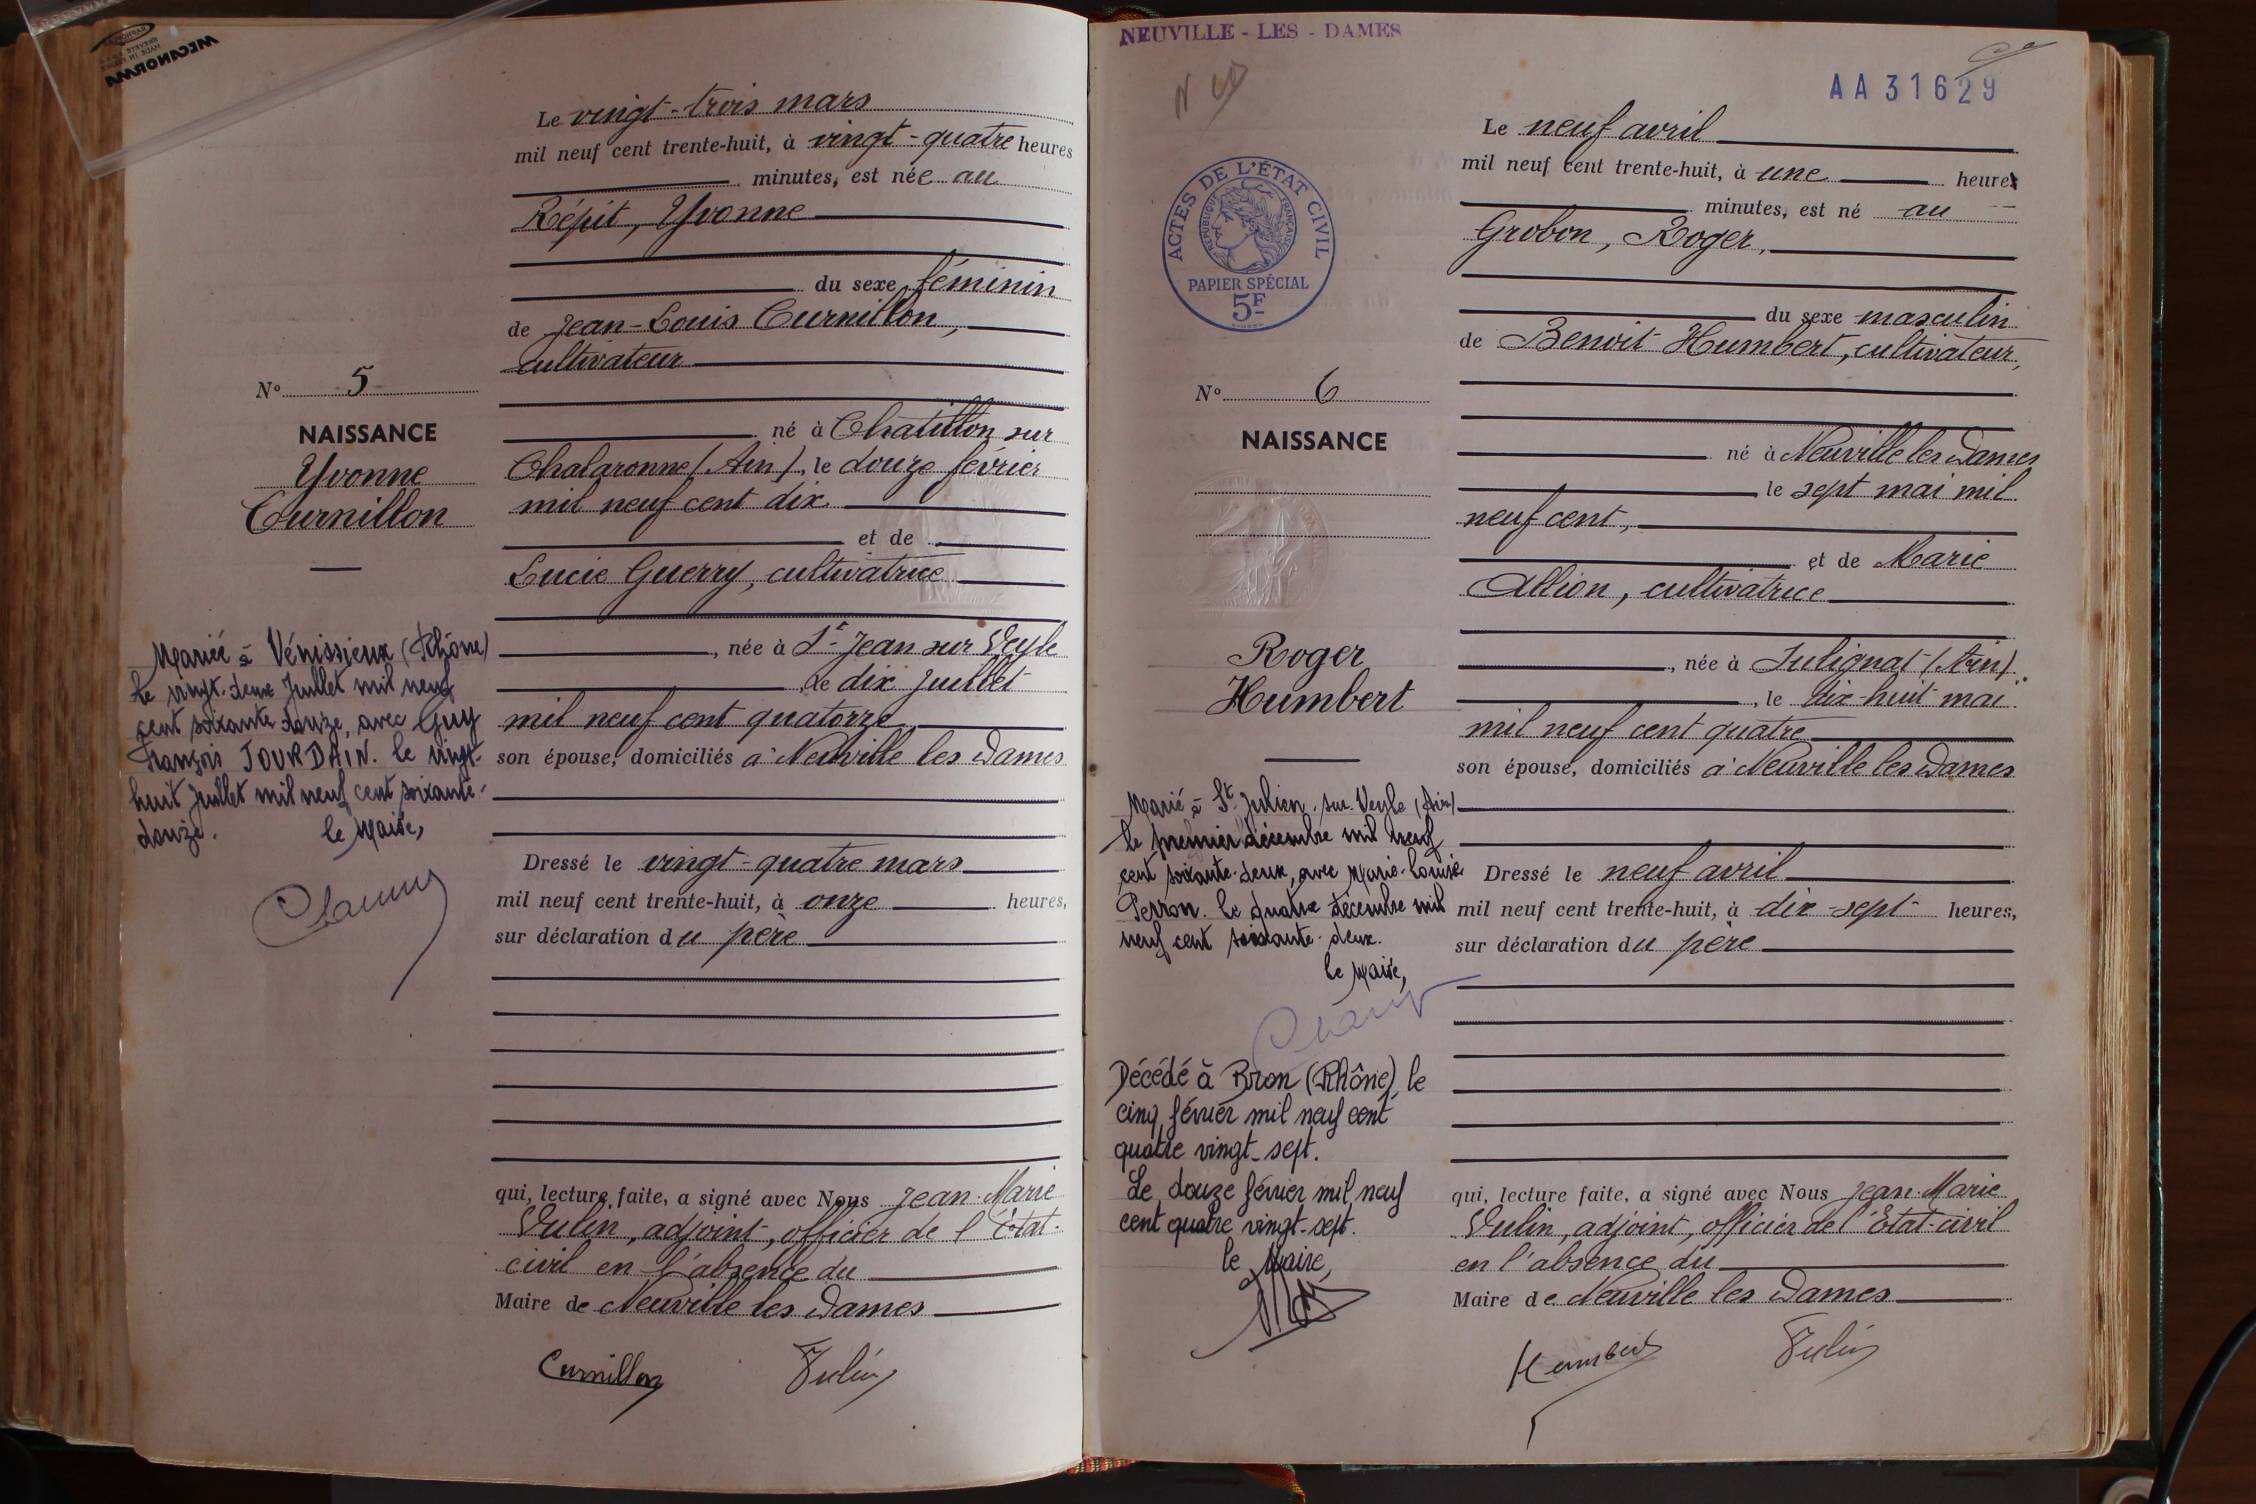 MECANORMA
Le vingt-trois mars
mil neuf cent trente-huit, à vingt-quatre heures
minutes, est née au
Répit, Yvonne
du sexe féminin
de Jean-Louis Curnillon,
cultivateur
né à Chatillon sur
Chalaronne (Ain), le douze février
mil neuf cent dix
et de
Lucie Guerry, cultivatrice
, née à St Jean sur Veyle
, le dix juillet
mil neuf cent quatorze
son épouse, domiciliés à Neuville les Dames
Dressé le vingt-quatre mars
mil neuf cent trente-huit, à onze heures,
sur déclaration du père
qui, lecture faite, a signé avec Nous Jean-Marie
Vulin, adjoint, officier de l'Etat-
civil en l'absence du
Maire de Neuville les Dames
Curnillon Vulin
N° 5
NAISSANCE
Yvonne
Curnillon
Mariée à Vénissieux (Rhône)
le vingt-deux Juillet mil neuf
cent soixante douze, avec Guy
François JOURDAIN. le vingt-
huit Juillet mil neuf cent soixante-
douze. le Maire,
NEUVILLE - LES - DAMES
AA 31629
ACTES DE L'ÉTAT CIVIL
RÉPUBLIQUE FRANÇAISE
PAPIER SPÉCIAL
5F
Le neuf avril
mil neuf cent trente-huit, à une heure
minutes, est né au
Grobon, Roger,
du sexe masculin
de Benoit Humbert, cultivateur,
né à Neuville les Dames
le sept mai mil
neuf cent,
et de Marie
Allion, cultivatrice
, née à Sulignat (Ain)
, le dix-huit mai
mil neuf cent quatre
son épouse, domiciliés à Neuville les Dames
Dressé le neuf avril
mil neuf cent trente-huit, à dix-sept heures,
sur déclaration du père
qui, lecture faite, a signé avec Nous Jean-Marie
Vulin, adjoint, officier de l'Etat-civil
en l'absence du
Maire de Neuville les Dames
Humbert Vulin
N° 6
NAISSANCE
Roger
Humbert
Marié à St Julien-sur-Veyle (Ain)
le premier décembre mil neuf
cent soixante-deux, avec Marie-Louise
Perron. le quatre décembre mil
neuf cent soixante-deux.
le Maire,
Décédé à Bron (Rhône), le
cinq février mil neuf cent
quatre vingt-sept.
Le douze février mil neuf
cent quatre vingt-sept.
le Maire,